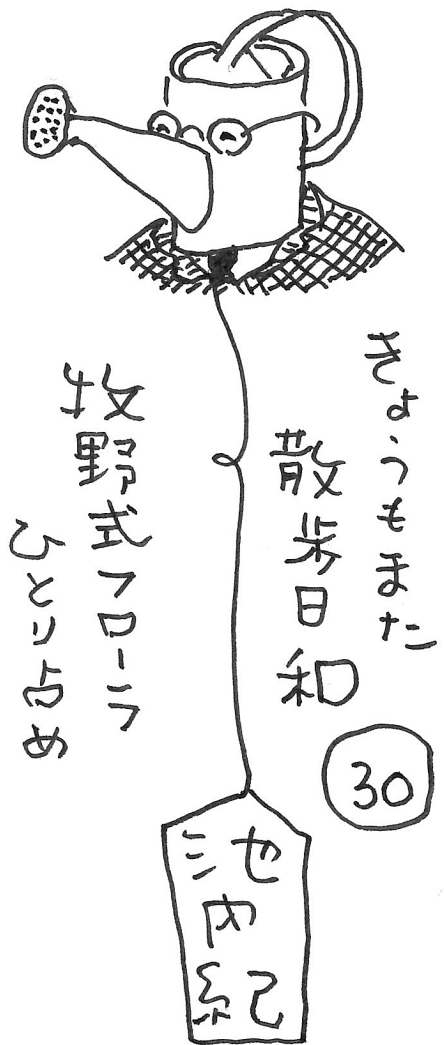 きょうもまた
散歩日和
30
牧野式フローラ
ひとり占め
池内紀